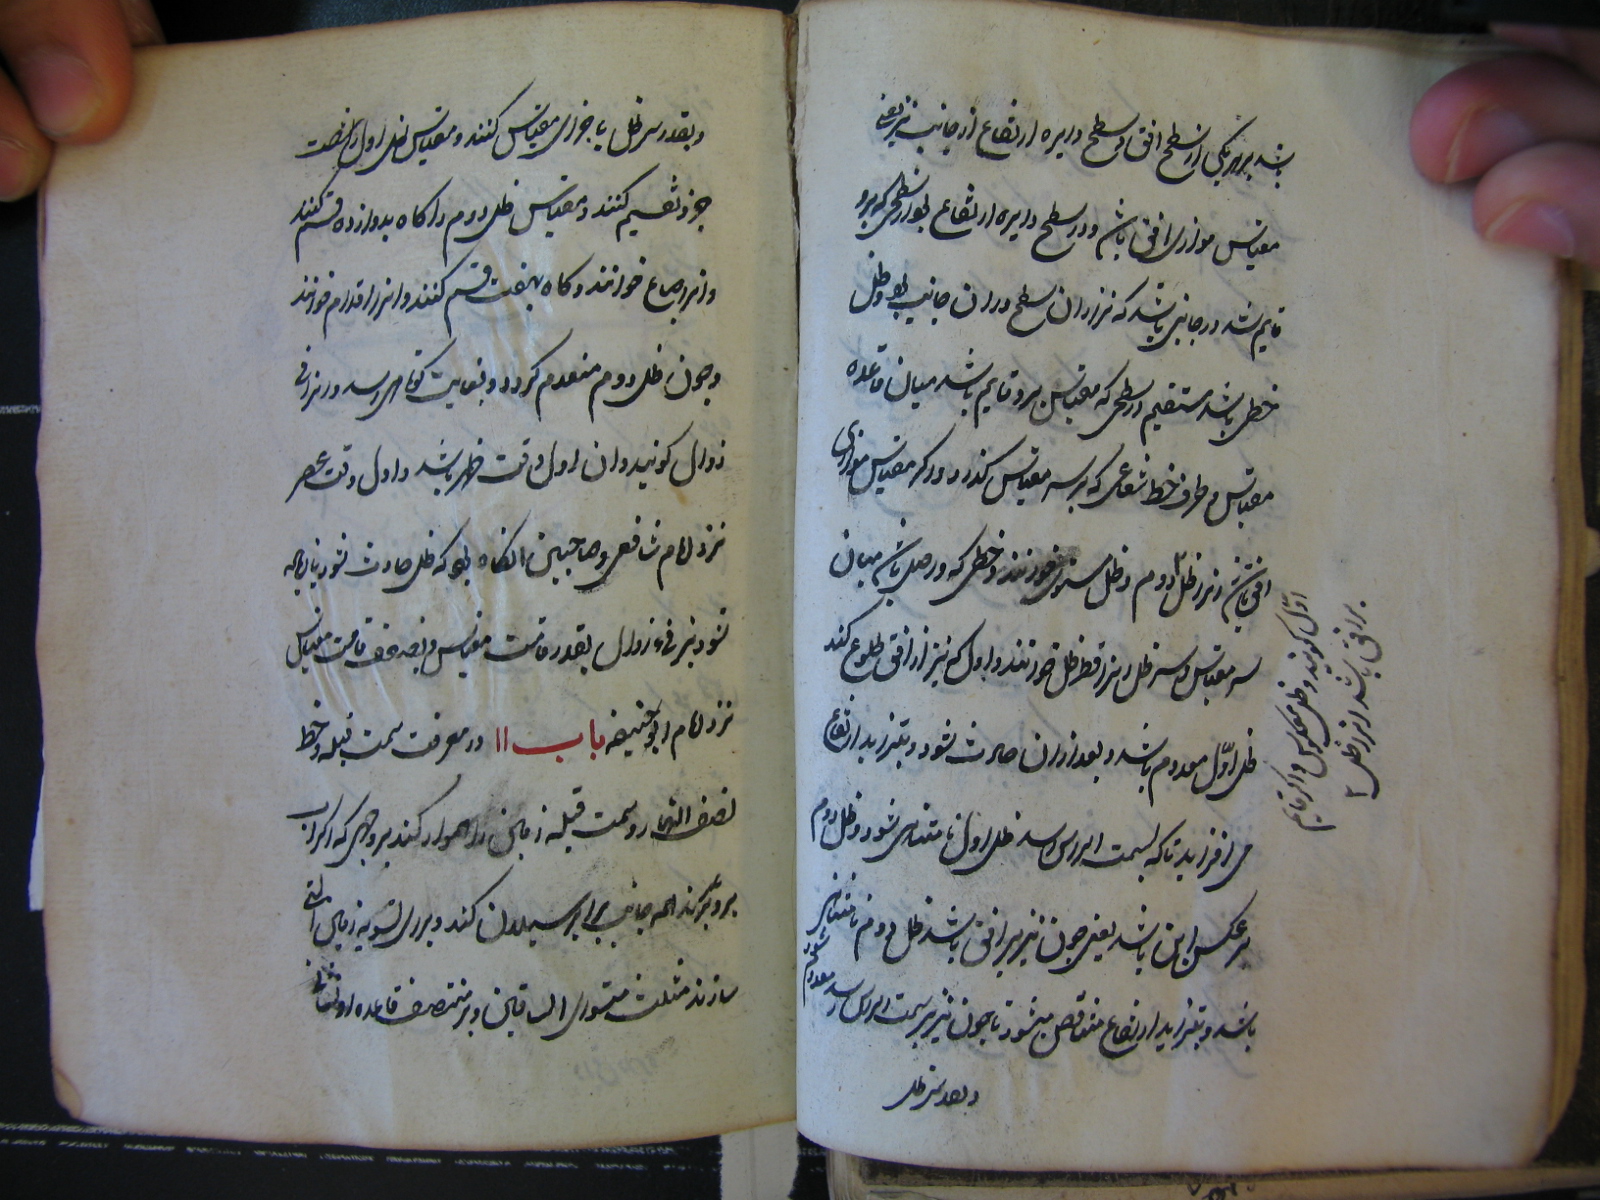 باشد بر یکی از سطح افق و سطح دایره ارتفاع از جانب نیر یعنی
مقیاس موازی افق باشد و در سطح دایره ارتفاع بود از سطحی که برو
قایم باشد در جانبی باشد که نیر از ان سطح در ان جانب بود و ظل
خطی باشد مستقیم در سطحی که مقیاس برو قایم باشد میان قاعده
مقیاس و طرف خط شعاعی که بر سر مقیاس کذرد و اکر مقیاس موازی
افق باشد انرا ظل دوم و ظل مستوی خوانند و خطی که واصل باشد میان
سر مقیاس و سر ظل انرا قطر ظل خوانند و اول که نیر از افق طلوع کند
ظل اول معدوم باشد و بعد از ان حادث شود و بتزاید ارتفاع
می افزاید تا که بسمت الراس رسد ظل اول نا متناهی شود و ظل دوم
بر عکس این باشد یعنی چون نیر بر افق باشد ظل دوم نا متناهی
باشد و بتزاید ارتفاع متناقص میشود تا چون نیر بسمت الراس رسد معدوم شود
و بقدر سر ظل
اول کویند و ظل معکوس و اکر قایم
بر افق باشد انرا ظل ۲
و بقدر سر ظل با جزای مقیاس کنند و مقیاس ظل اول را بشصت
جزو تقسیم کنند و مقیاس ظل دوم را کاه بدوازده قسم کنند
و انرا اصابع خوانند و کاه بهفت قسم کنند و انرا اقدام خوانند
و چون ظل دوم منعدم کردد و بغایت کوتاهی رسد و انرا فی
زوال کویند و ان اول وقت ظهر باشد و اول وقت عصر
نزد امام شافعی و صاحبین انکاه بود که ظل حادث شود یا زیاده
شود بر فیء زوال بقدر قامت مقیاس و بضعف قامت مقیاس
نزد امام ابو حنیفه باب ۱۱ در معرفت سمت قبله و خط
نصف النهار و سمت قبله زمین را هموار کنند بر وجهی که اکر آب
برو ریزند از همه جانب برابر سیلان کند و برای تسویه زمین التی
سازند مثلث متساوی الساقین و بر منتصف قاعده او نشانی